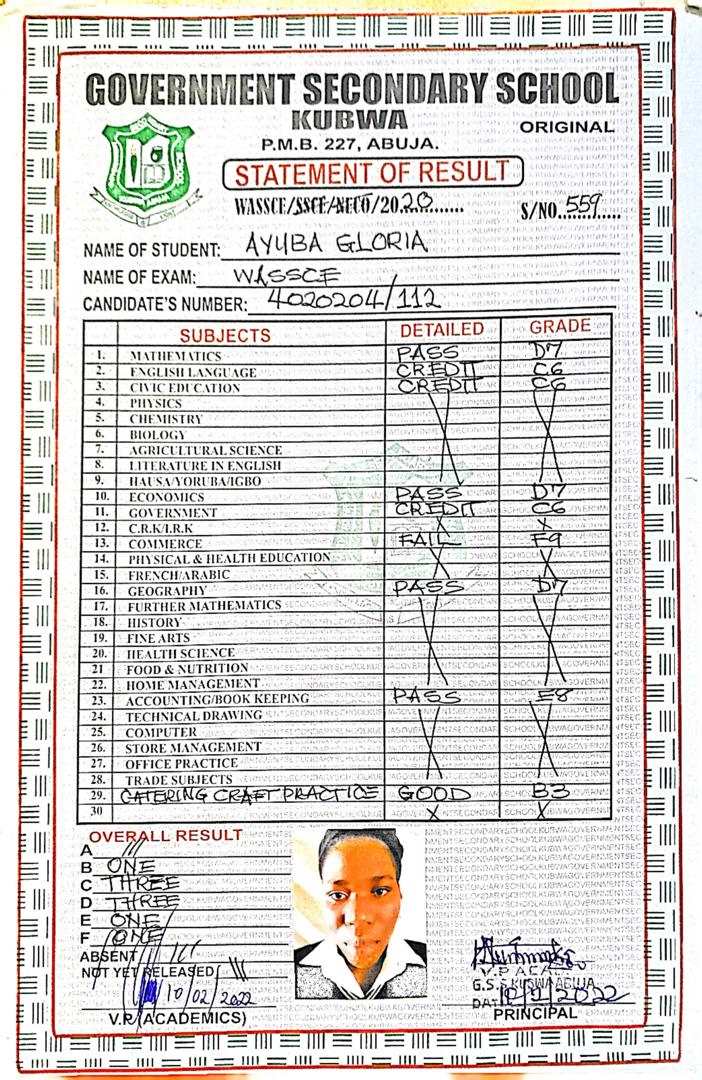 GOVERNMENT SECONDARY SCHOOL
KUBWA
ORIGINAL
P.M.B. 227, ABUJA.
STATEMENT OF RESULT
WASSCE/SSCE/NECO/2020
S/NO. 559
NAME OF STUDENT: AYUBA GLORIA
NAME OF EXAM: WASSCE
CANDIDATE'S NUMBER: 4020204/112
SUBJECTS DETAILED GRADE
1. MATHEMATICS PASS D7
2. ENGLISH LANGUAGE CREDIT C6
3. CIVIC EDUCATION CREDIT C6
4. PHYSICS
5. CHEMISTRY
6. BIOLOGY
7. AGRICULTURAL SCIENCE
8. LITERATURE IN ENGLISH
9. HAUSA/YORUBA/IGBO
10. ECONOMICS PASS D7
11. GOVERNMENT CREDIT C6
12. C.R.K/I.R.K X X
13. COMMERCE FAIL F9
14. PHYSICAL & HEALTH EDUCATION
15. FRENCH/ARABIC
16. GEOGRAPHY PASS D7
17. FURTHER MATHEMATICS
18. HISTORY
19. FINE ARTS
20. HEALTH SCIENCE
21 FOOD & NUTRITION
22. HOME MANAGEMENT
23. ACCOUNTING/BOOK KEEPING PASS E8
24. TECHNICAL DRAWING
25. COMPUTER
26. STORE MANAGEMENT
27. OFFICE PRACTICE
28. TRADE SUBJECTS
29. CATERING CRAFT PRACTICE GOOD B3
30 X X
OVERALL RESULT
A
B ONE
C THREE
D THREE
E ONE
F ONE
ABSENT
NOT YET RELEASED
10/02/2022
V.P. (ACADEMICS)
V.P ACA
G.S.S KUBWA ABUJA
DATE 2022
PRINCIPAL